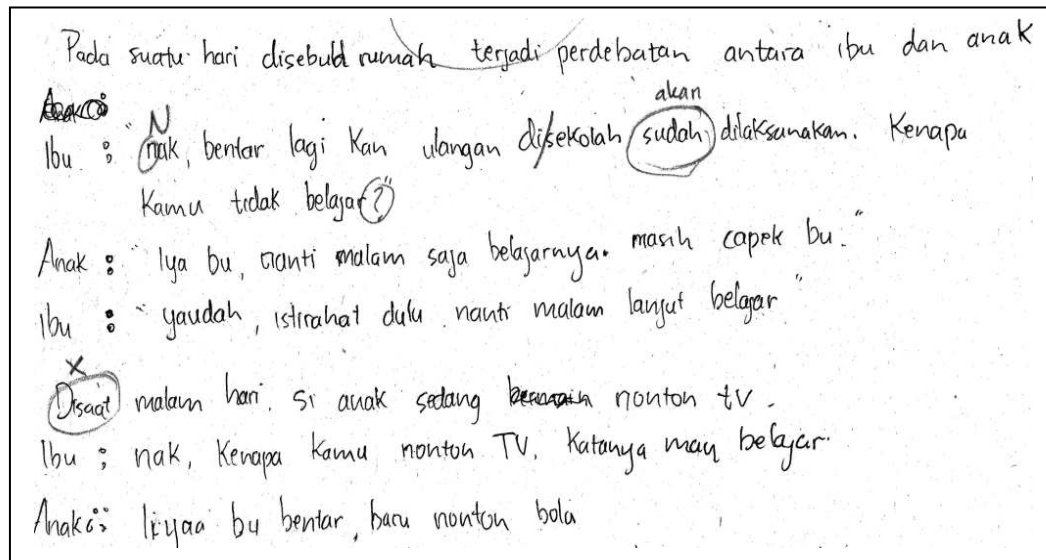 Pada suatu hari disebuld rumah terjadi perdebatan antara ibu dan anak
akan
N
Ibu : "nak, bentar lagi kan ulangan disekolah sudah dilaksanakan. Kenapa
Kamu tidak belajar?"
Anak : "Iya bu, nanti malam saja belajarnya. masih capek bu."
Ibu : "yaudah, istirahat dulu nanti malam lanjut belajar"
X
Disaat malam hari. si anak sedang nonton tv.
Ibu : nak, Kenapa kamu nonton TV. Katanya mau belajar.
Anak : Iiyaa bu bentar, baru nonton bola